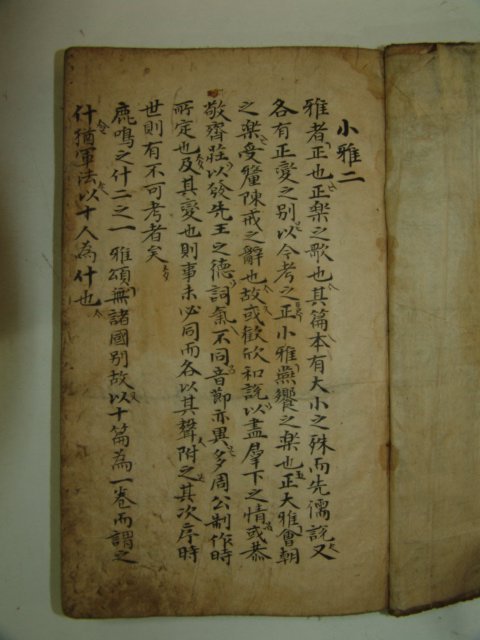 小雅二
雅者正也正楽之歌也其篇本有大小之殊而先儒説又
各有正變之别以今考之正小雅燕饗之楽也正大雅會朝
之楽受釐陳戒之辭也故或歡欣和説以盡羣下之情或恭
敬齊莊以發先王之德詞氣不同音節亦異多周公制作時
所定也及其變也則事未必同而各以其聲附之其次序時
世則有不可考者矣
鹿鳴之什二之一 雅頌無諸國别故以十篇為一卷而謂之
什猶軍法以十人為什也